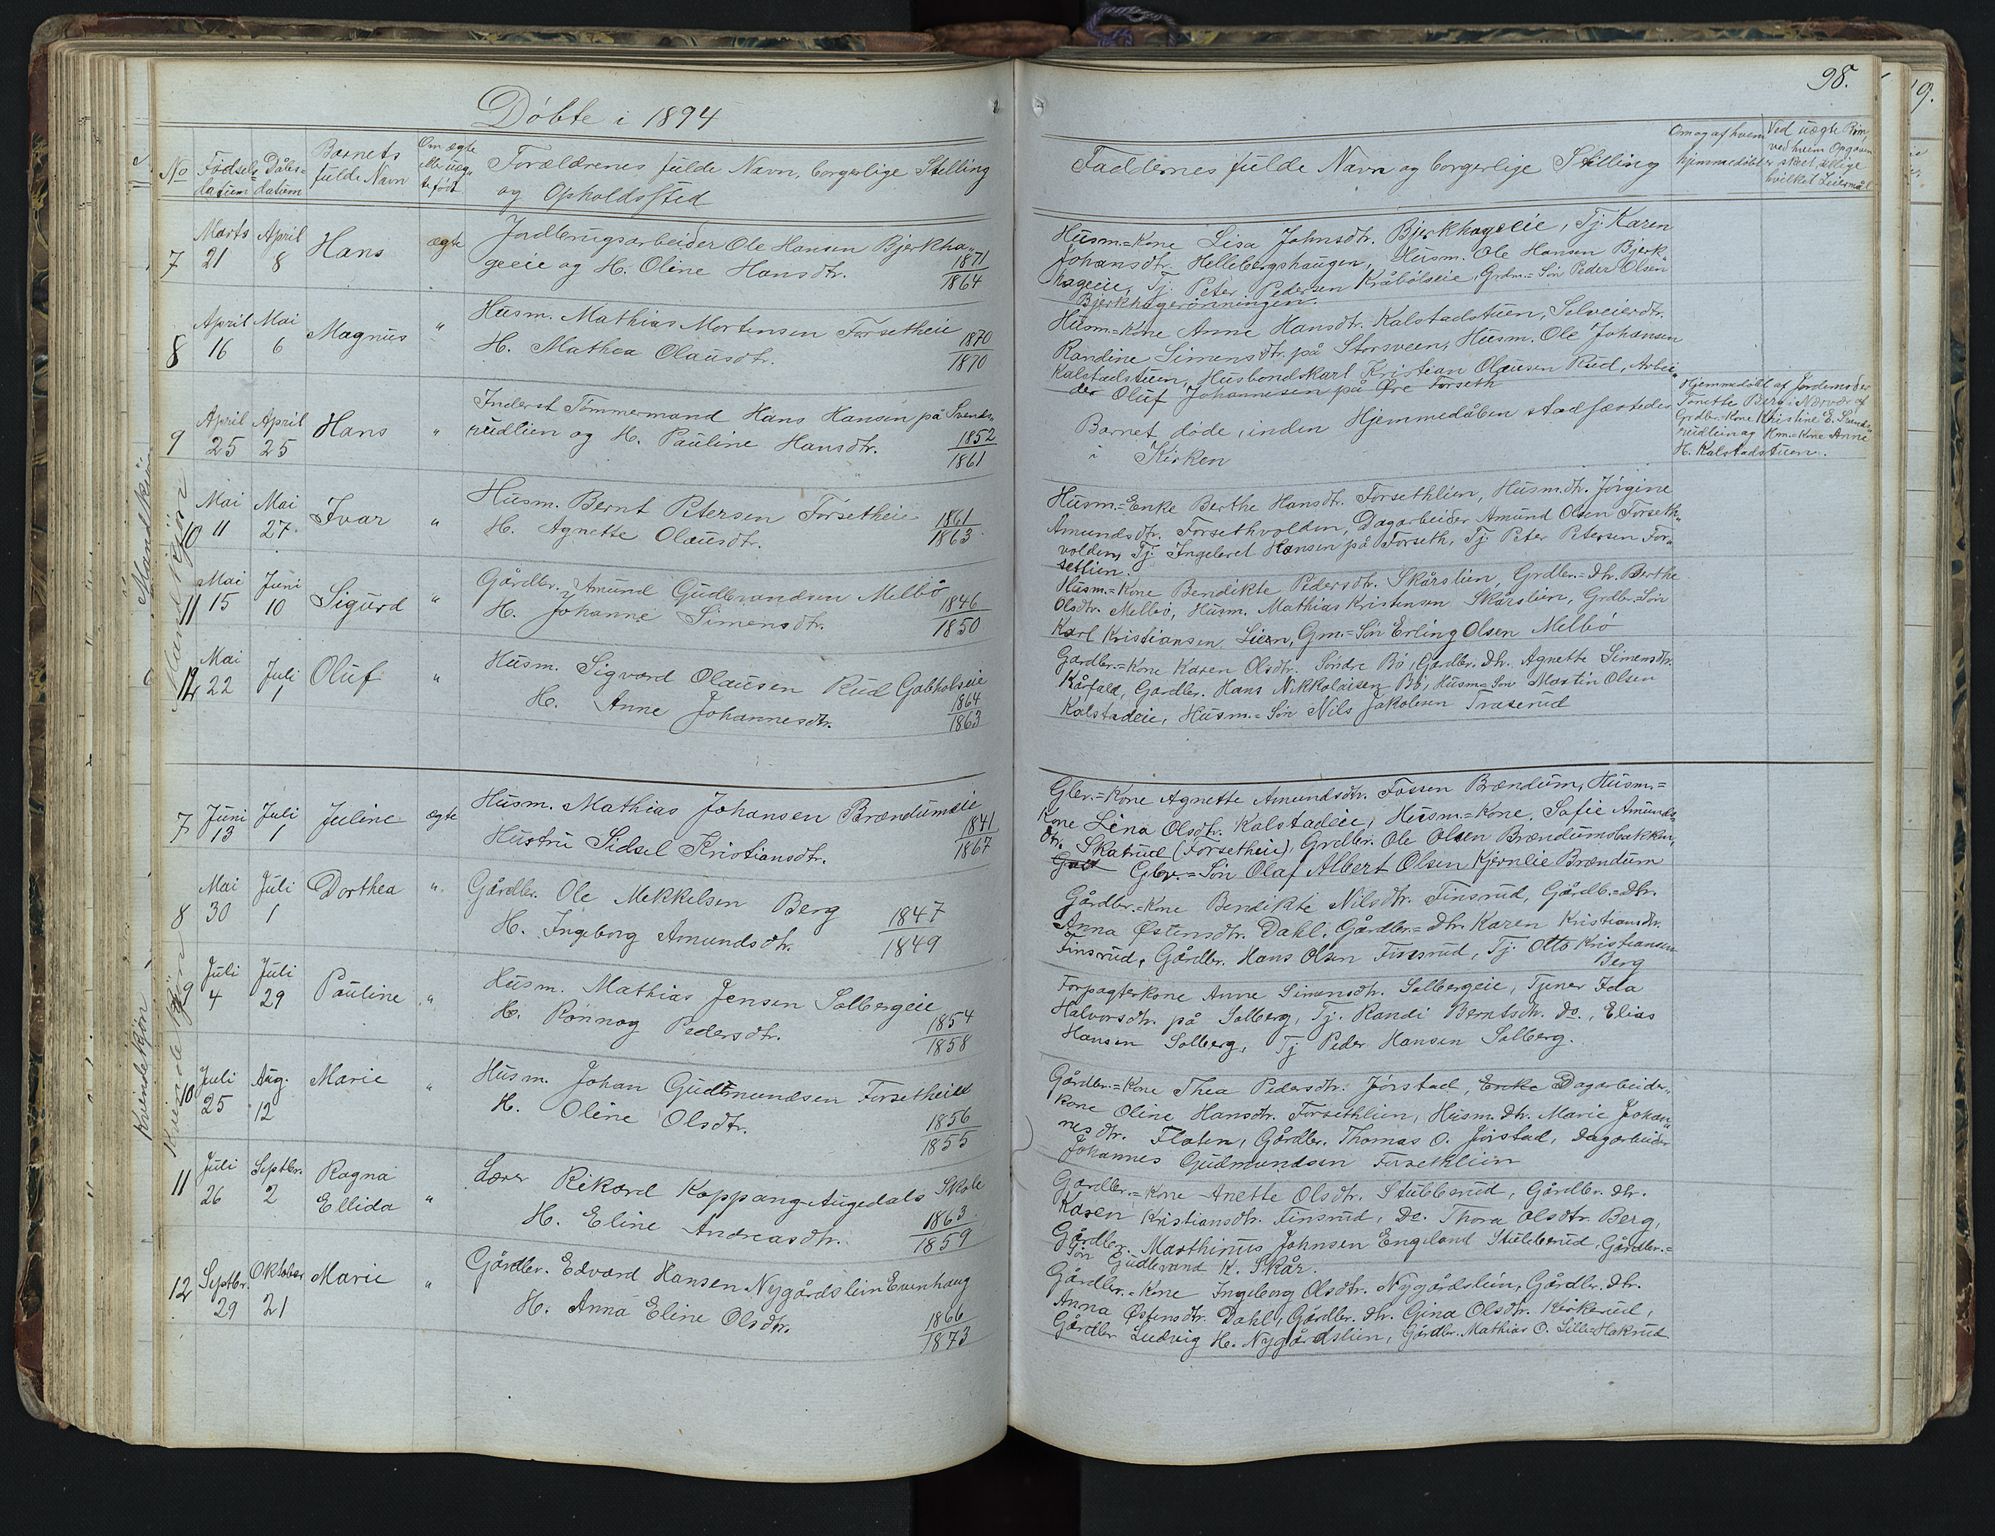 Døbte i 1894
No
Fødsels-
datum
Dåbs-
datum
Barnets
fulde Navn
Om ægte
eller uæg-
te født
Forældrenes fulde Navn, borgerlige Stilling
og Opholdssted
7
Marts
21
April
8
Hans
ægte
Jordbrugsarbeider Ole Hansen Bjerkha-
geeie og H. Oline Hansdtr.
1871
1864
8
April
16
Mai
6
Magnus
"
Husm. Mathias Mortensen Forsetheie
H. Mathea Olausdtr.
1870
1870
9
April
25
April
25
Hans
"
Inderst Tømmermand Hans Hansen på Svends-
rudlien og H. Pauline Hansdtr.
1852
1861
10
Mai
11
Mai
27
Ivar
"
Husm. Bernt Petersen Forsetheie
H. Agnette Olausdtr.
1861
1863
11
Mai
15
Juni
10
Sigurd
"
Gårdbr. Amund Gudbrandsen Melbö
H. Johanne Simensdtr.
1846
1850
12
Mai
22
Juli
1
Oluf
"
Husm. Sigvard Olausen Rud Galholseie
H. Anne Johannesdtr.
1864
1863
Mandkjøn
Mandkjøn
7
Juni
13
Juli
1
Juline
ægte
Husm. Mathias Johansen Brændumeie
Hustru Sidsel Kristiansdtr.
1841
1867
8
Mai
30
Juli
1
Dorthea
"
Gårdbr. Ole Mekkelsen Berg
H. Ingeborg Amundsdtr.
1847
1849
9
Juli
4
Juli
29
Pauline
"
Husm. Mathias Jensen Solbergeie
H. Rønnog Pedersdtr.
1854
1858
10
Juli
25
Aug.
12
Marie
"
Husm. Johan Gudmundsen Forsetheie
H. Oline Olsdtr.
1856
1855
11
Juli
26
Septbr.
2
Ragna
Ellida
"
Lærer Rikard Koppang Augedals Skole
H. Eline Andreasdtr.
1863
1859
12
Septbr.
29
Oktober
21
Marie
"
Gårdbr. Edvard Hansen Nygårdslien Evenhaug
H. Anna Eline Olsdtr.
1866
1873
Kvindekjøn
Kvindekjøn
98.
Faddernes fulde Navn og borgerlige Stilling
Om og af hvem
hjemmedøbt
Ved uægte Børn,
ved hvem Opgaven
er sket, ellige
hvilket Leiermål
Husm.=Kone Lisa Johnsdtr. Bjerkhageeie, Tj. Karen
Johansdtr. Hellebergshaugen, Husm. Ole Hansen Bjerk-
hageeie, Tj. Peter Pedersen Kråbølseie, Grdm.=Søn Peder Olsen
Bjerkhagerønningen.
Husm.=Kone Anne Hansdtr. Kalstadstuen, Selveierdtr.
Randine Simensdtr. på Storsveen, Husm. Ole Johansen
Kalstadstuen, Husbondskarl Kristian Olausen Rud, Arbei-
der Oluf Johannesen på Øvre Forseth
Barnet døde, inden Hjemmedåben stadfæstedes
i Kirken
Hjemmedøbt af Jordemoder
Tonette Berg i Nærvær af
Grdbr.-Kone Kristine E. Svends-
rudlien og Hm.-Kone Anne
H. Kalstadstuen.
Husm.=Enke Berthe Hansdtr. Forsethlien, Husm.dtr. Jørgine
Amundsdtr. Forsethvolden, Dagarbeider Amund Olsen Forseth-
volden, Tj. Ingeleret Hansen på Forseth, Tj. Peter Petersen For-
setlien.
Husm.=Kone Bendikte Pedersdtr. Skårslien, Grdbr.=Dtr. Berthe
Olsdtr. Melbø, Husm. Mathias Kristensen Skårslien, Grdbr.=Søn
Karl Kristiansen Lien, Gm.=Søn Erling Olsen Melbø
Gardbr.=Kone Karen Olsdtr. Søndre Bø, Gardbr. Dtr. Agnette Simensdtr.
Kårfald, Gardbr. Hans Nikkolaisen Bø, Husm=Søn Martin Olsen
Kalstadeie, Husm.=Søn Nils Jakobsen Traserud
Gbr.=Kone Agnette Amundsdtr. Fossen Brændum, Husm.=
Kone Lina Olsdtr. Kalstadeie, Husm.=Kone. Sofie Amunds-
dtr. Skatrud (Forsetheie), Grdbr. Ole Olsen Brændumsbakken,
Gbr.=Søn Olaf Albert Olsen Kjernlie Brændum
Gårdbr.=Kone Bendikte Nilsdtr. Finsrud, Gårdb.=Dtr.
Anna Østensdtr. Dahl, Gårdbr.=Dtr. Karen Kristiansdtr.
Finsrud, Gårdbr. Hans Olsen Finsrud, Tj. Otto Kristiansen
Berg
Forpagterkone Anne Simensdtr. Solbergeie, Tjener Ida
Halvorsdtr. på Solberg, Tj. Randi Berntsdtr. Do., Elias
Hansen Solberg, Tj Peder Hansen Solberg.
Gårdbr.=Kone Thea Pedersdtr. Jørstad, Enke Dagarbeider-
kone Oline Hansdtr. Forsethlien, Husm. Dtr. Marie Johan-
nesdtr. Flaten, Gårdbr. Thomas O. Jørstad, Dagarbeider
Johannes Gudmundsen Forsethlien
Gårdbr.=Kone Anette Olsdtr. Stubberud, Gårdbr. Dtr.
Karen Kristiansdtr. Finsrud, Do. Thora Olsdtr. Berg,
Gårdbr. Marthinus Johnsen Engeland Stubberud, Gårdbr.=
Søn Gudbrand K. Skår.
Gårdbr.=Kone Ingeborg Olsdtr. Nygårdslien, Gårdbr. Dtr.
Anna Østensdtr. Dahl, Gårdbr. Dtr. Gina Olsdtr. Kirkerud,
Gårdbr Ludvig H. Nygårdslien, Gårdbr. Mathias O. Lille=Hakrud
9.